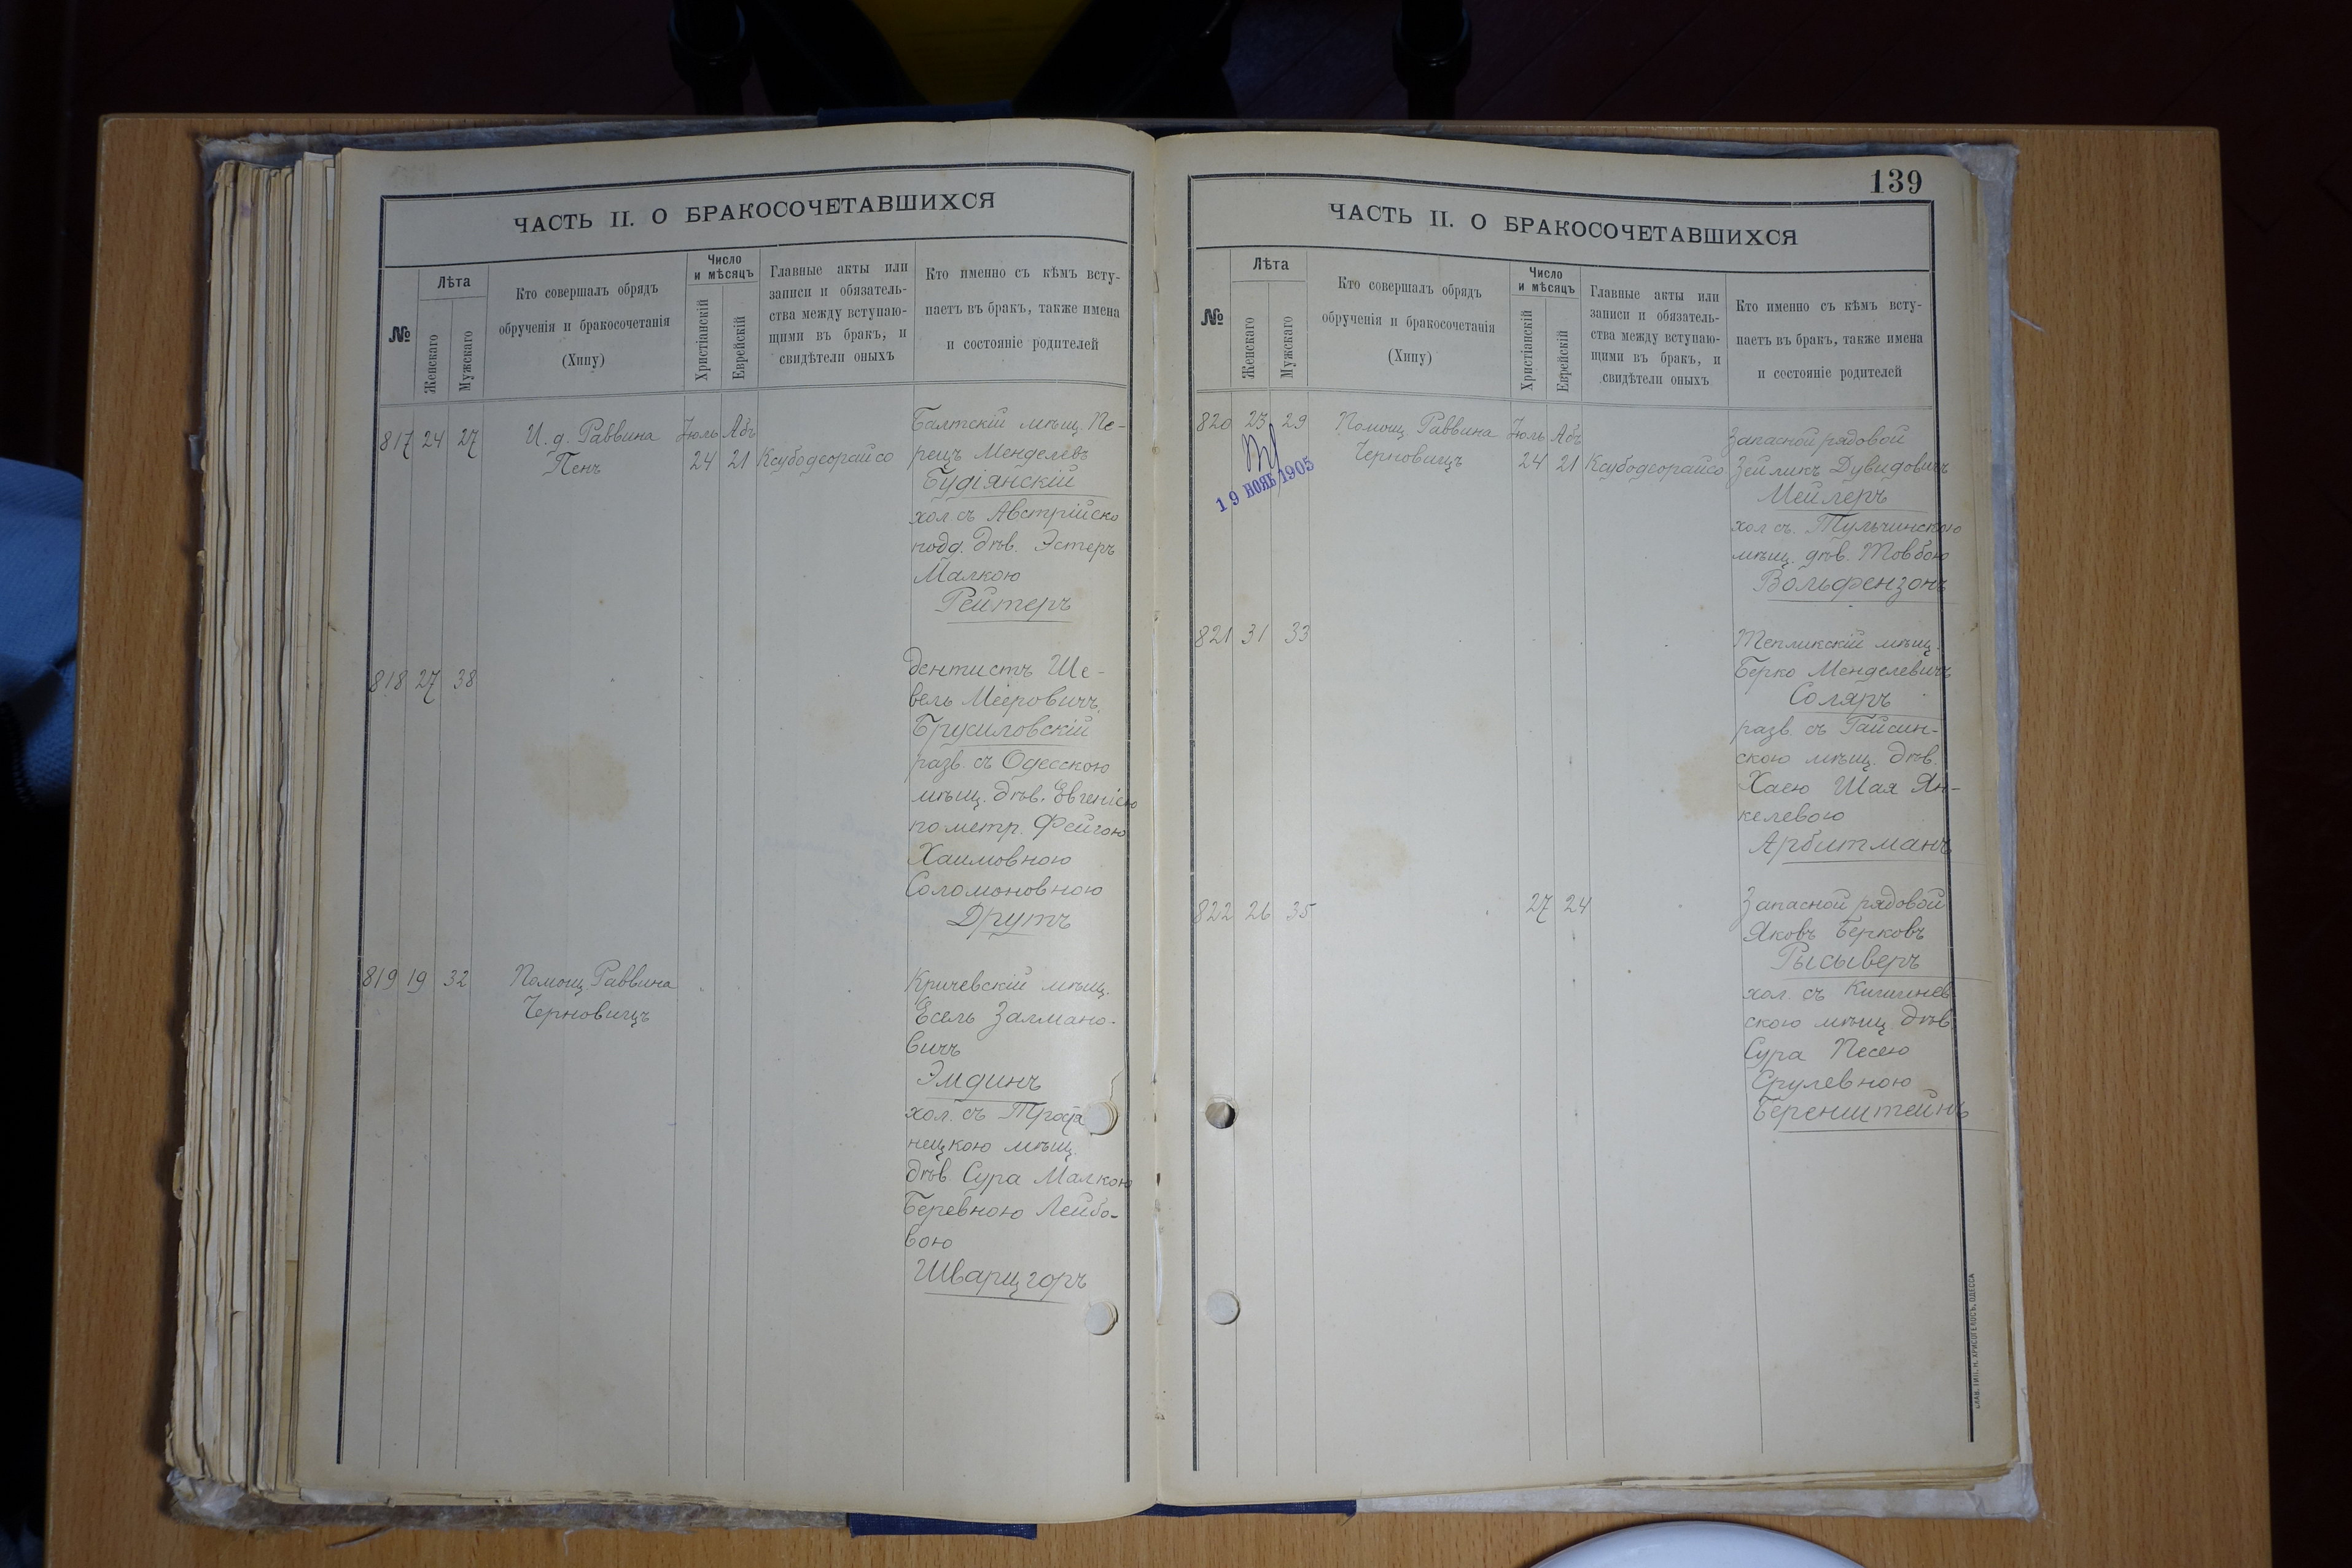 ЧАСТЬ II. О БРАКОСОЧЕТАВШИХСЯ
№
Лѣта
Женскаго
Мужскаго
Кто совершалъ обрядъ
обрученія и бракосочетанія
(Хипу)
Число
и мѣсяцъ
Христіанскій
Еврейскій
Главные акты или
записи и обязатель-
ства между вступаю-
щими въ бракъ, и
свидѣтели оныхъ
Кто именно съ кѣмъ всту-
паетъ въ бракъ, также имена
и состояніе родителей
817 24 27 И. д. Раввина Іюль Абъ
Пенъ 24 21 Ксубодеорайсо
Балтскій мѣщ. Пе-
рецъ Менделевъ
Будіянскій
хол. съ Австрійско
подд. дѣв. Эстеръ
Малкою
Рейтеръ
818 27 38
дентистъ Ше-
вель Мееровичъ
Брусиловскій
разв. съ Одесскою
мѣщ. дѣв. Евгеніею
по метр. Фейгою
Хаимовною
Соломоновною
Друтъ
819 19 32 Помощ. Раввина
Черновицъ
Кричевскій мѣщ.
Есель Залмано-
вичъ
Эмдинъ
хол. съ
нецкою мѣщ.
дѣв. Сура Малкою
Беревною Лейбо-
вою
Шварцгоръ
139
ЧАСТЬ II. О БРАКОСОЧЕТАВШИХСЯ
№
Лѣта
Женскаго
Мужскаго
Кто совершалъ обрядъ
обрученія и бракосочетанія
(Хипу)
Число
и мѣсяцъ
Христіанскій
Еврейскій
Главные акты или
записи и обязатель-
ства между вступаю-
щими въ бракъ, и
свидѣтели оныхъ
Кто именно съ кѣмъ всту-
паетъ въ бракъ, также имена
и состояніе родителей
820 23 29 Помощ. Раввина Іюль Абъ
Черновицъ 24 21 Ксубодеорайсо
19 НОЯБ 1905
Запасной рядовой
Зейликъ Дувидовичъ
Мейлеръ
хол. съ Тульчинскою
мѣщ. дѣв. Товбою
Вольфензонъ
821 31 33
Тепликскій мѣщ.
Берко Менделевичъ
Соляръ
разв. съ Гайсин-
скою мѣщ. дѣв.
Хаею Шая Ян-
келевою
Арбитманъ
822 26 35 27 24
Запасной рядовой
Яковъ Берковъ
Рысыверъ
хол. съ Кишинев-
скою мѣщ. дѣв.
Сура Песею
Срулевною
Беренштейнъ
БЛАВ. ТИП. Н. ХРИСОГЕЛОСЪ, ОДЕССА